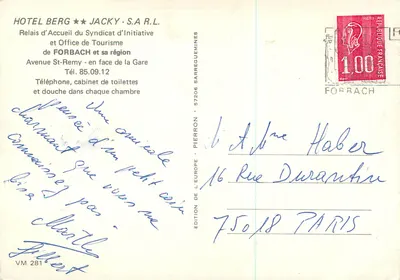 HOTEL BERG ★★ JACKY - S A R L.
Relais d'Accueil du Syndicat d'Initiative
et Office de Tourisme
de FORBACH et sa région
Avenue St-Remy - en face de la Gare
Tél. 85.09.12
Téléphone, cabinet de toilettes
et douche dans chaque chambre
Une amicale
pensée d'un petit coin
charmant que vous ne
connaissez pas -
Gilbert
VM 281
EDITION DE L'EUROPE - PIERRON - 57206 SARREGUEMINES
REPUBLIQUE FRANÇAISE
1,00
FORBACH
Mme Haber
16 Rue Durantin
75018 PARIS